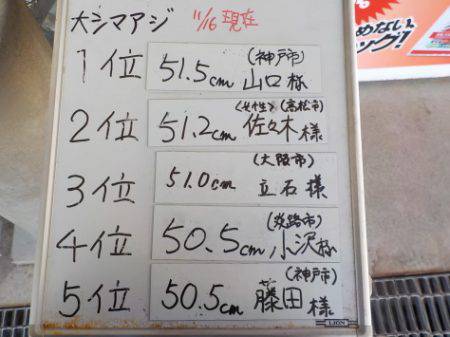 大シマアジ 11/16 現在
1位 51.5cm (神戸市) 山口様
2位 51.2cm (女性) (高松市) 佐々木様
3位 51.0cm (大阪市) 立石様
4位 50.5cm (淡路市) 小沢様
5位 50.5cm (神戸市) 藤田様
LION
めない
ング!